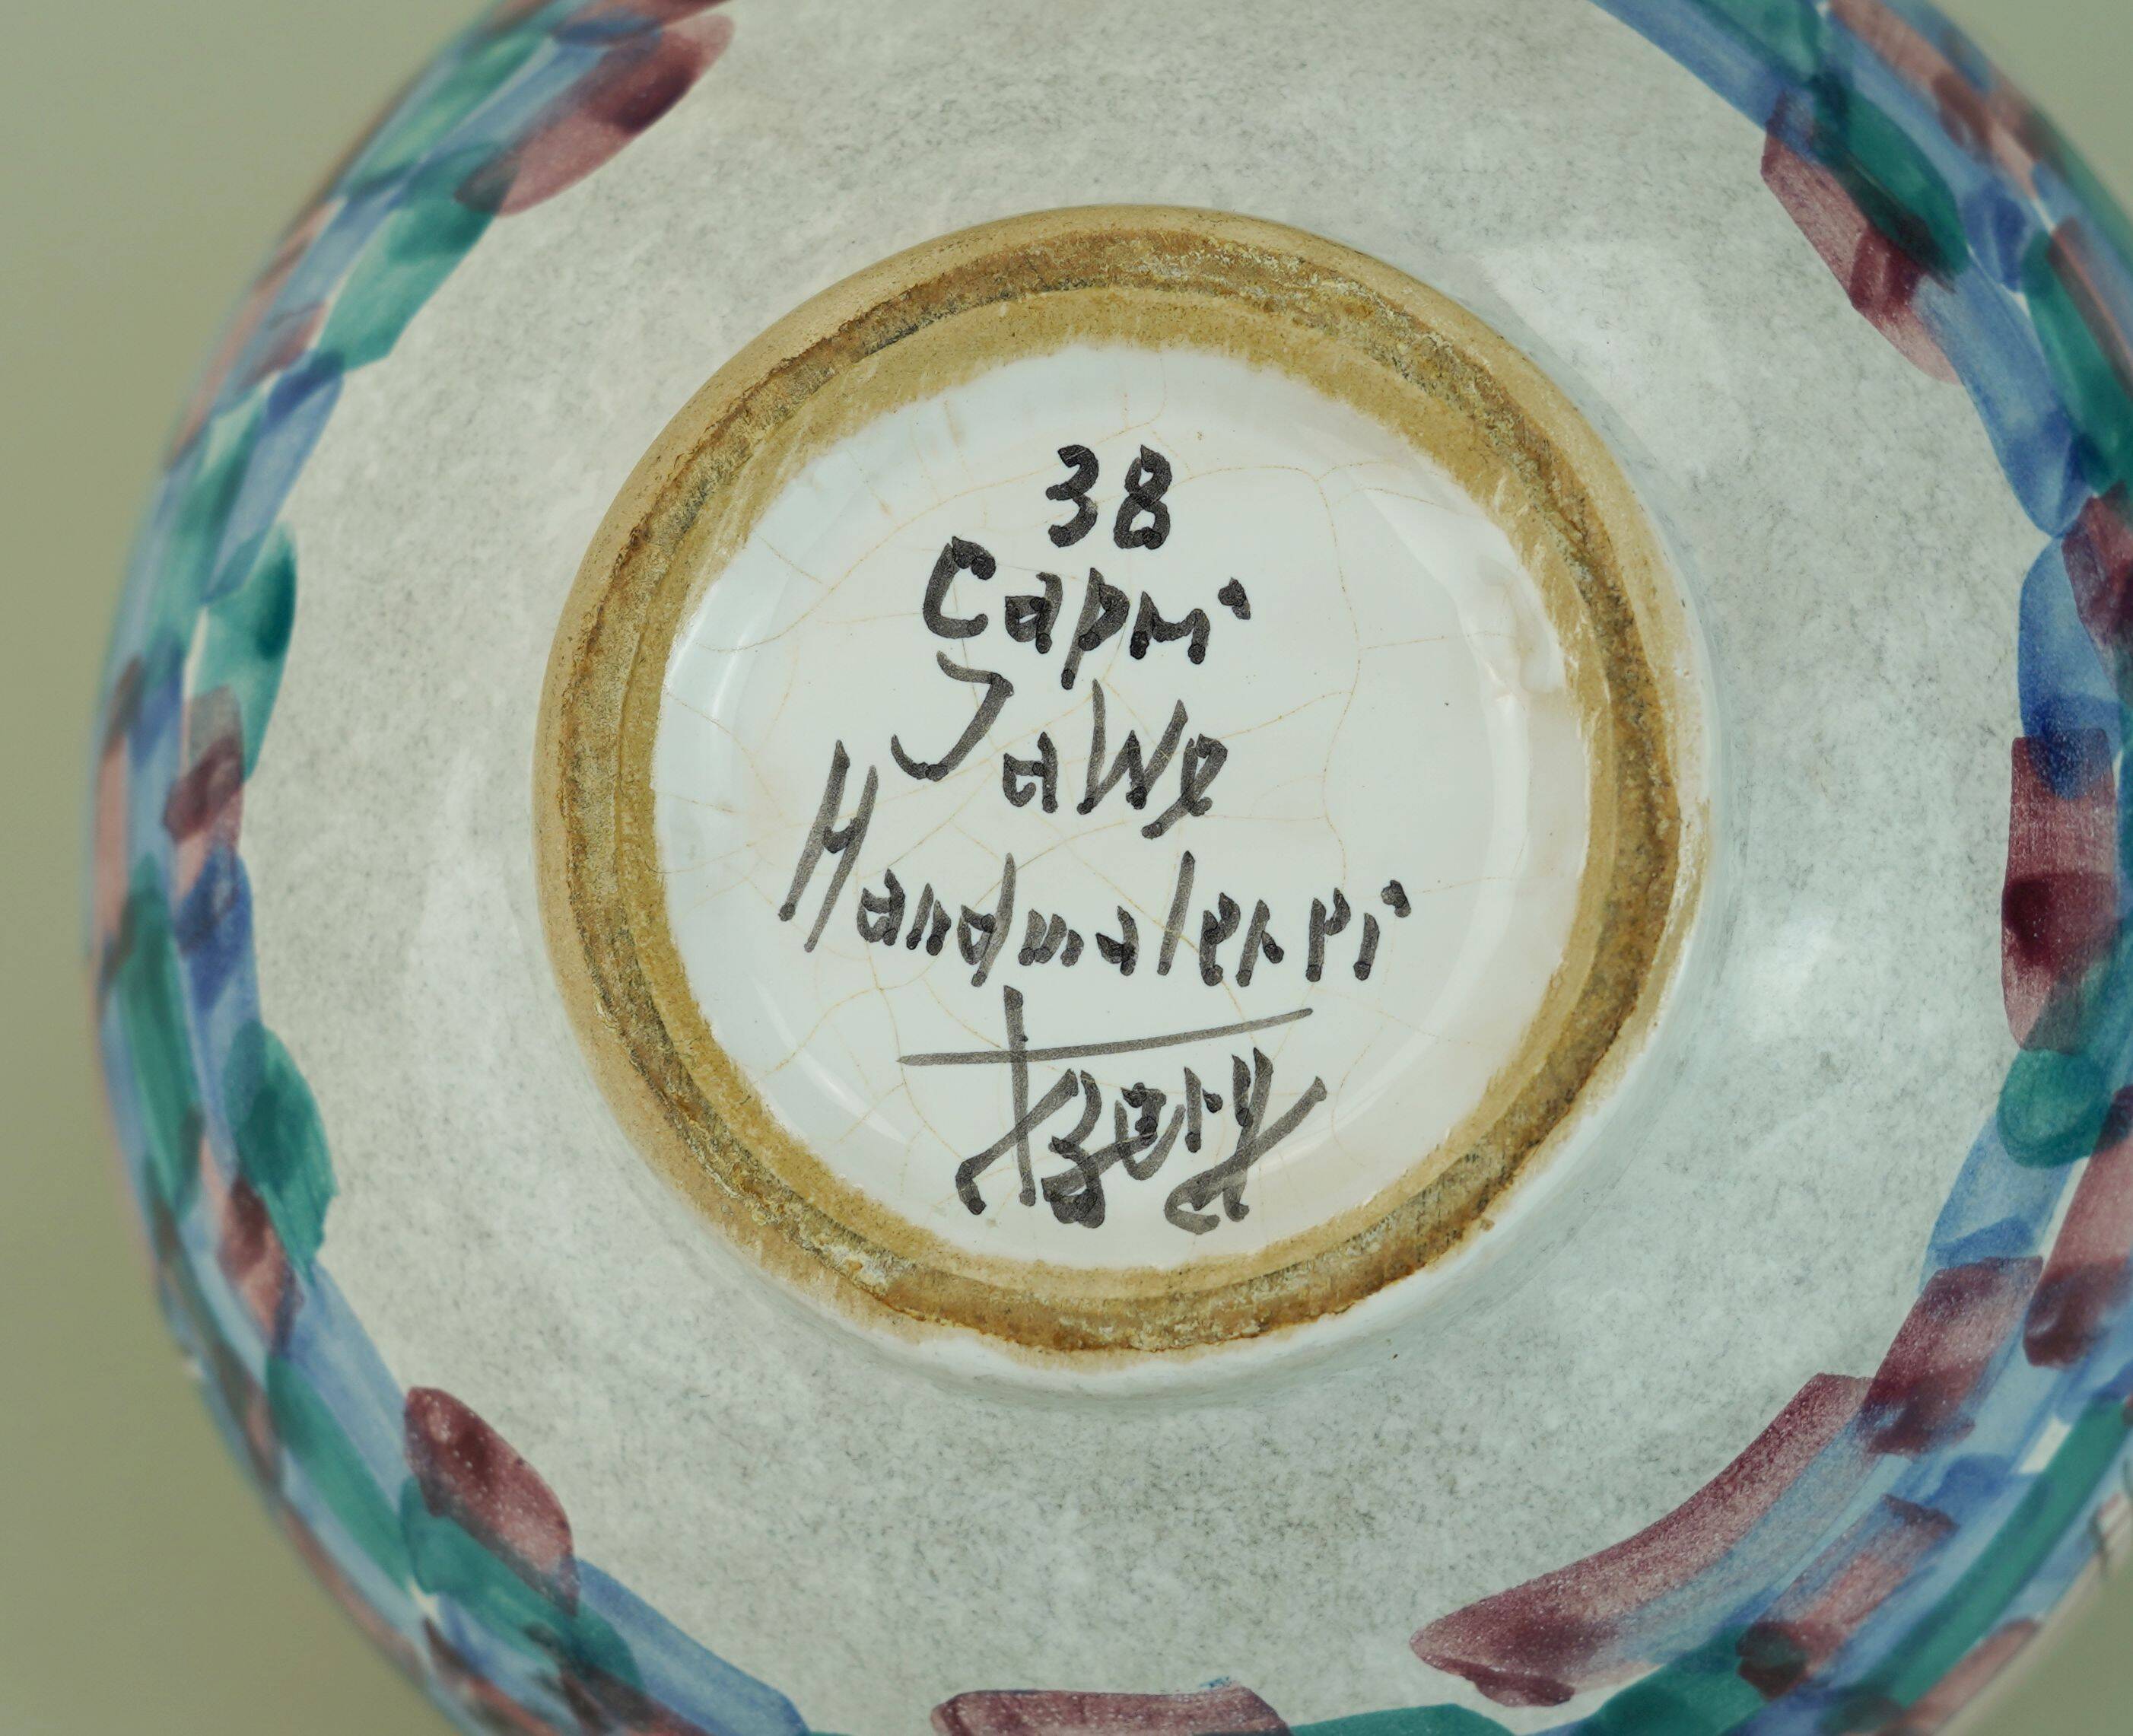 38
Capri
JaWe
Handmalerei